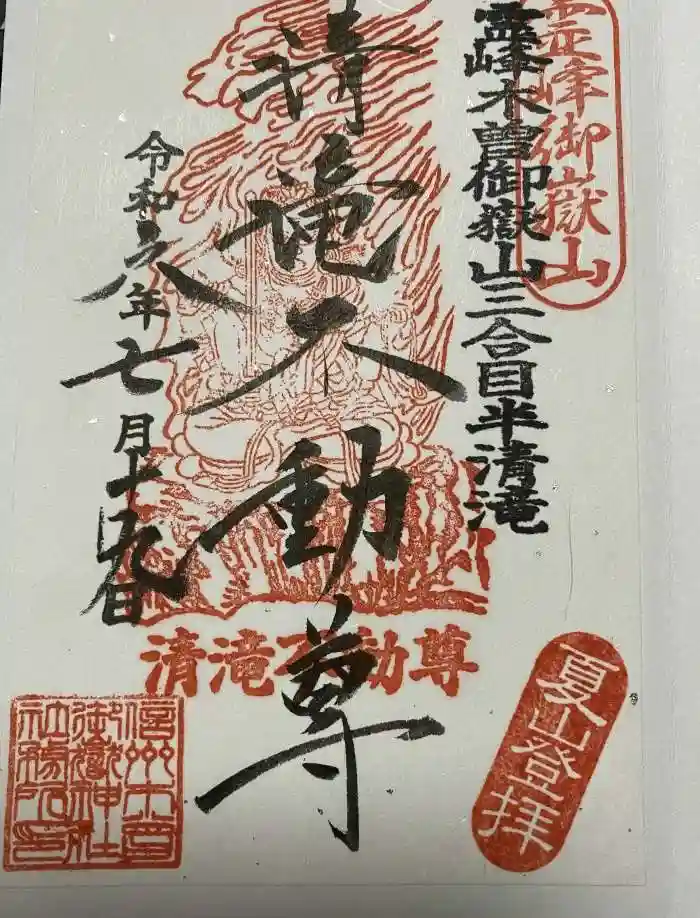 霊峰御嶽山
霊峰木曽御嶽山三合目半清滝
清滝不動尊
令和六年七月十九日
清滝不動尊
夏山登拝
信州
御嶽神社
社務所印